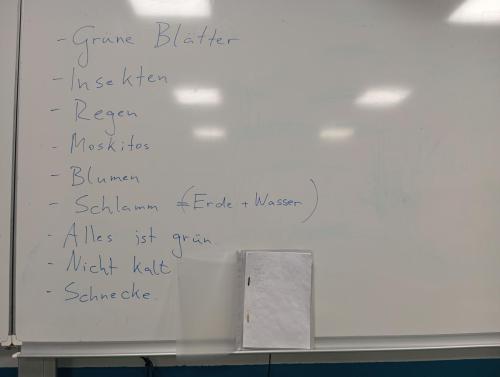 - Grüne Blätter
- Insekten
- Regen
- Moskitos
- Blumen
- Schlamm (=Erde + Wasser)
- Alles ist grün.
- Nicht kalt
- Schnecke.